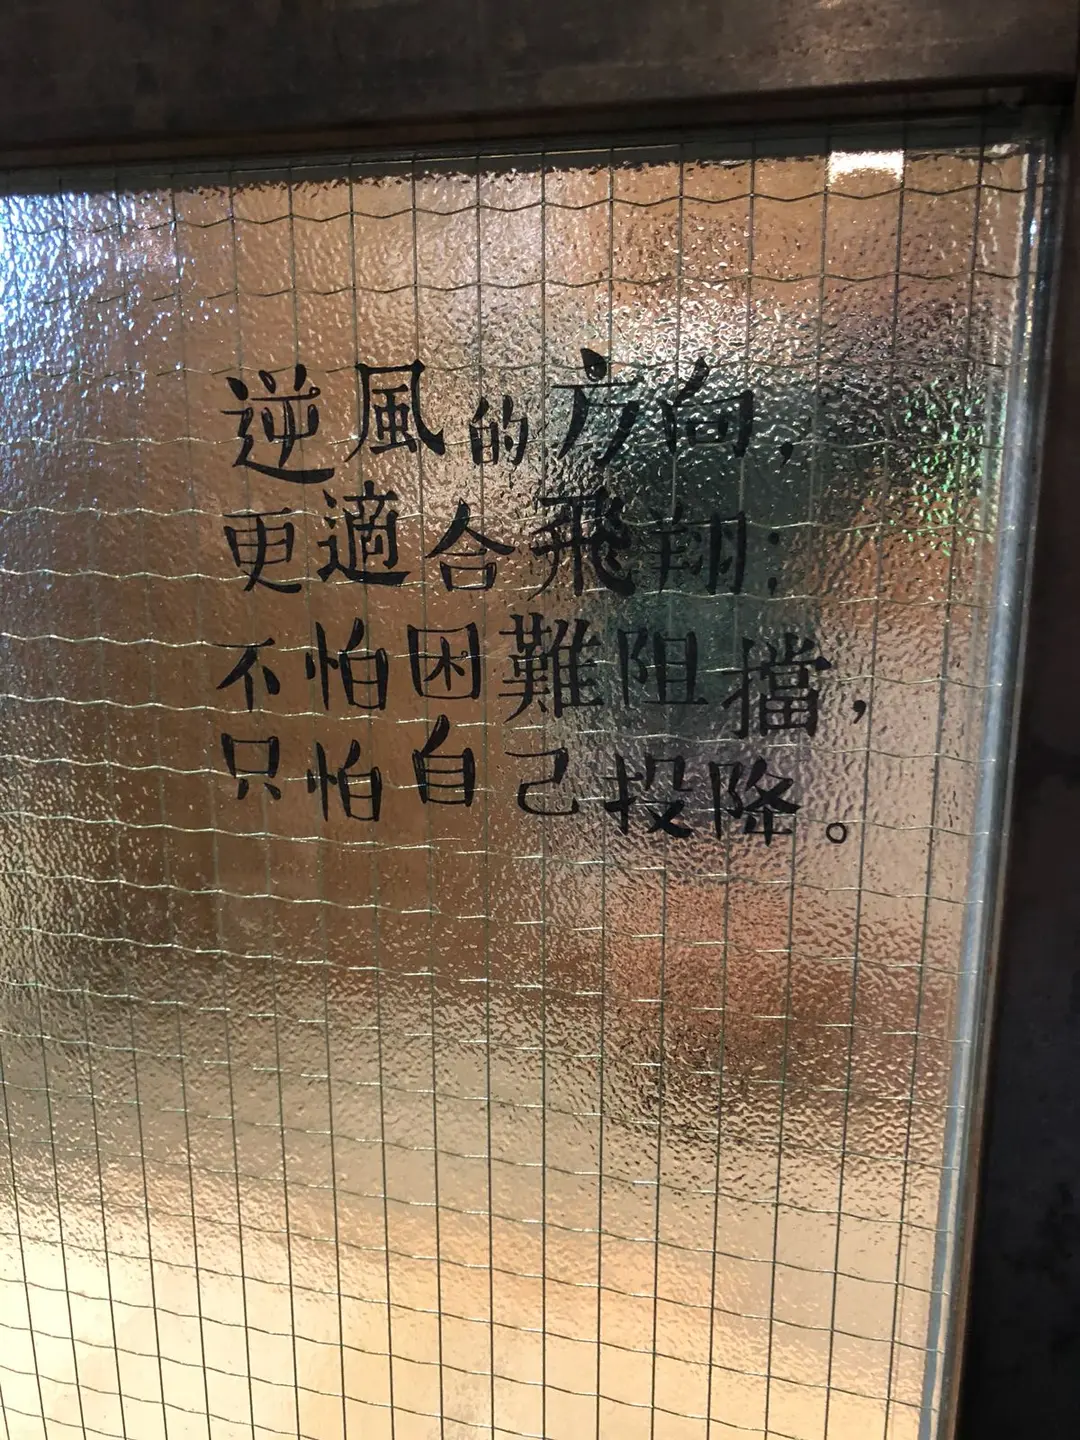 逆風的方向，
更適合飛翔；
不怕困難阻擋，
只怕自己投降。